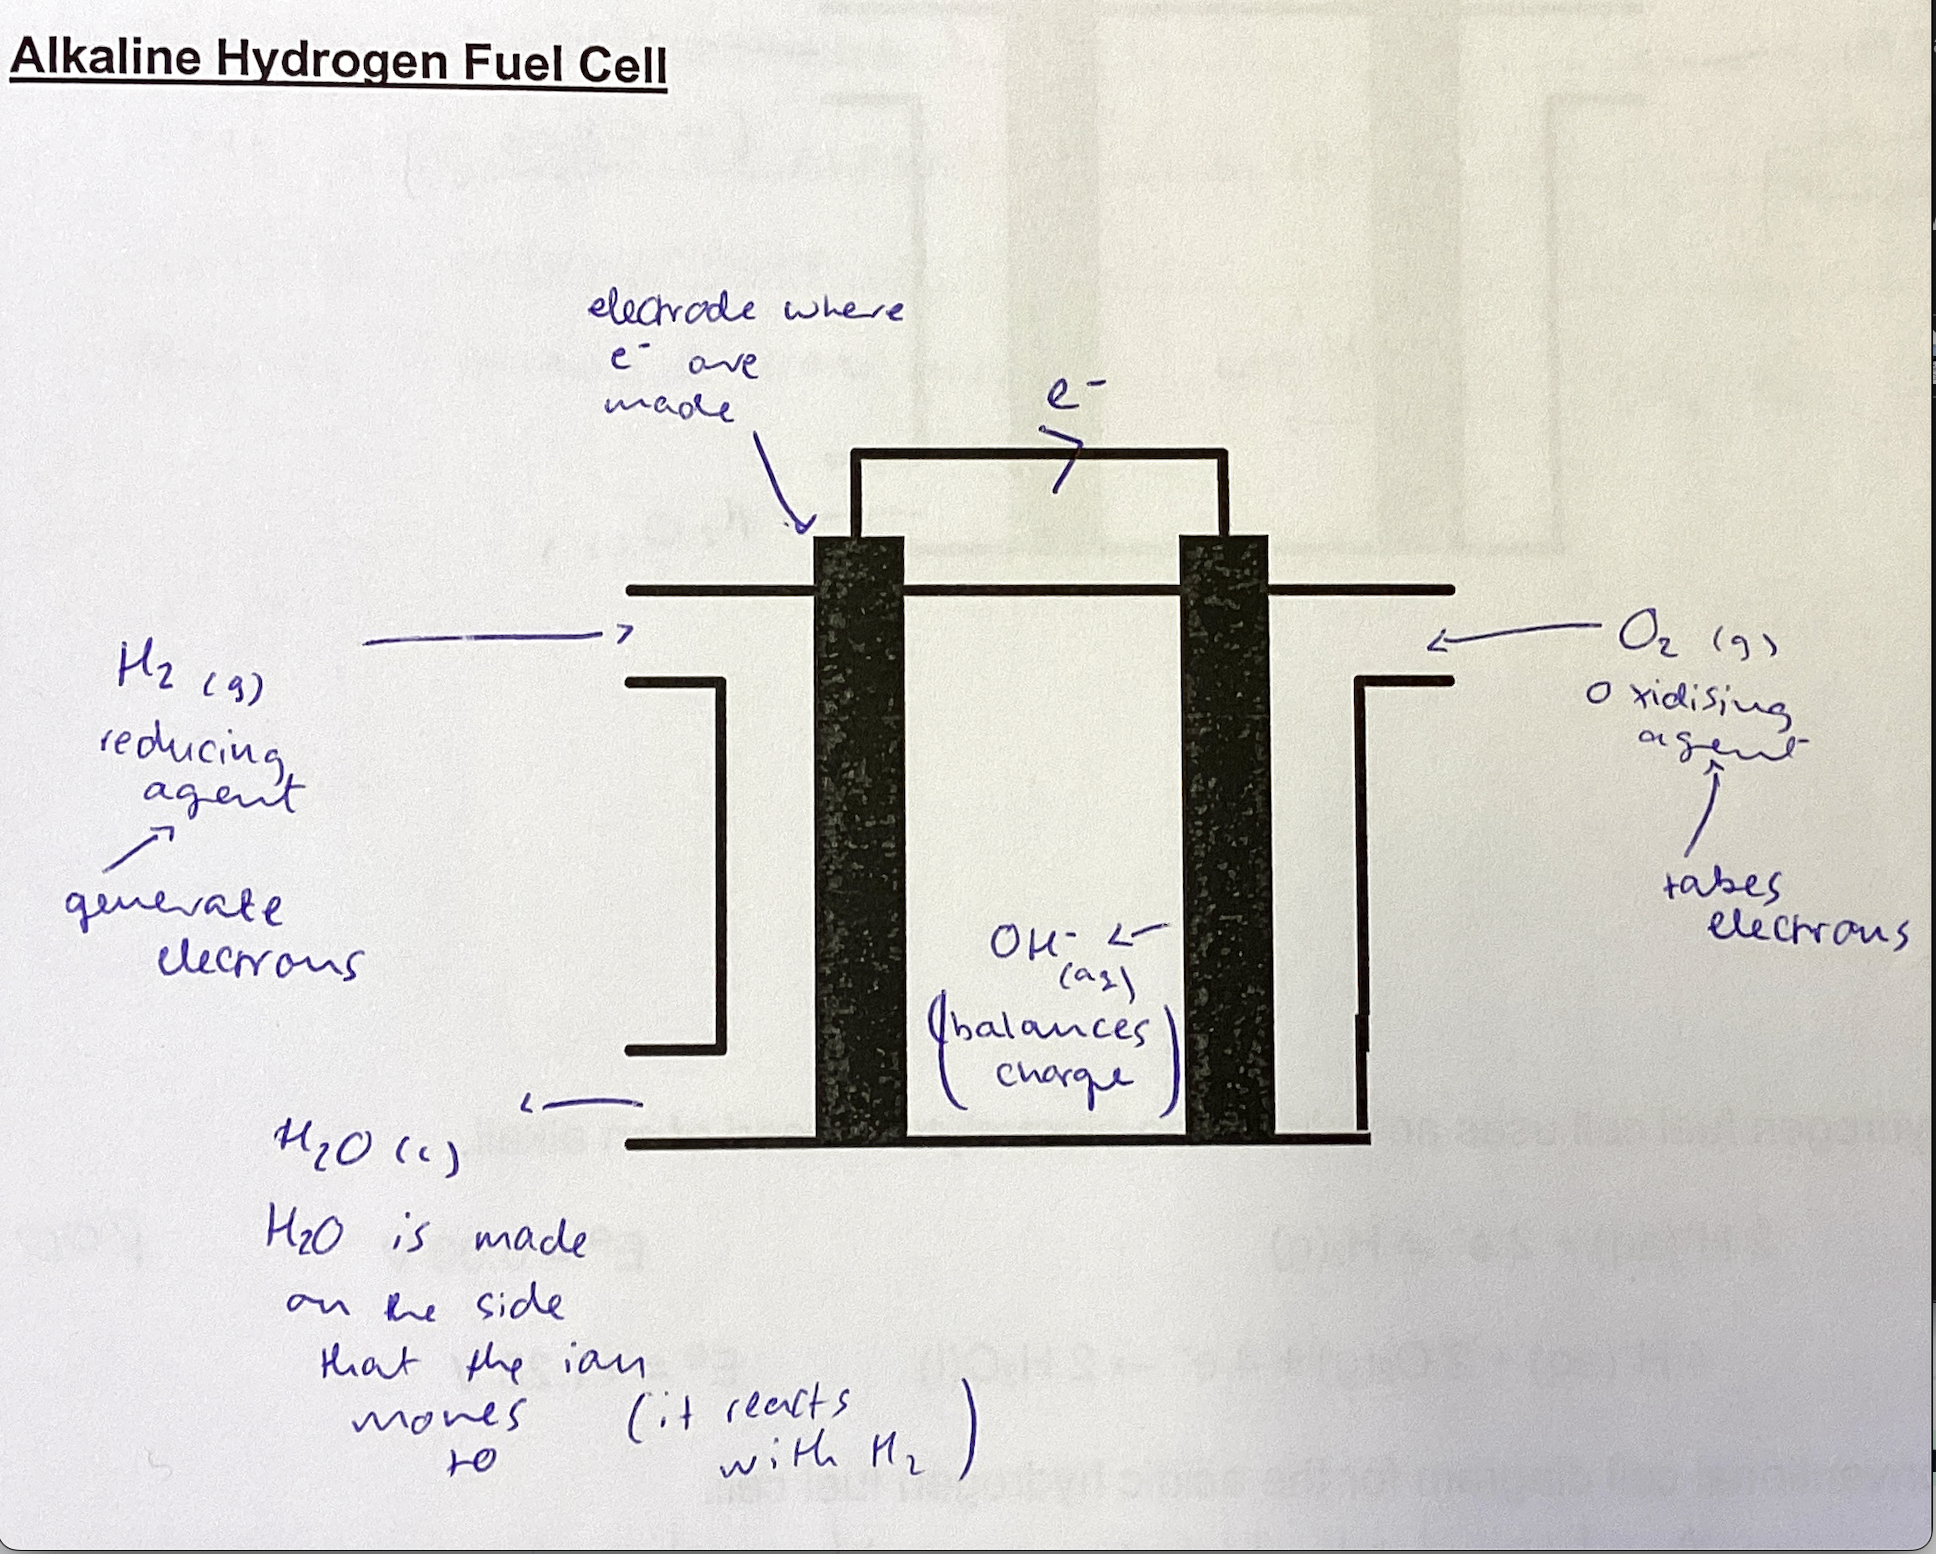 Alkaline Hydrogen Fuel Cell
electrode where
e⁻ are
made
e⁻
H₂ (g)
reducing
agent
generate
electrons
O₂ (g)
oxidising
agent
takes
electrons
OH⁻
(aq)
(balances
charge)
H₂O (l)
H₂O is made
on the side
that the ion
moves
to
(it reacts
with H₂)